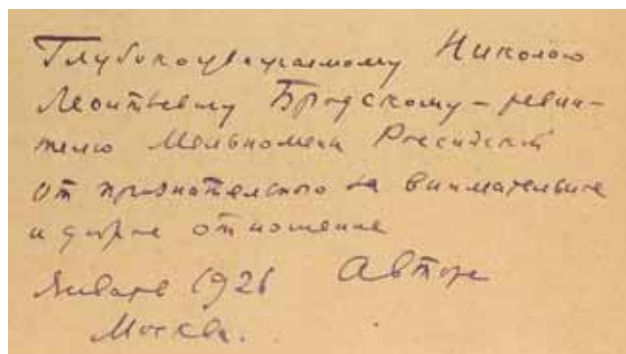 Глубокоуважаемому Николаю
Леонтьевичу Бродскому – ревни-
телю Мельпомены Российской
от признательного за внимательное
и доброе отношение
Автора
Январь 1926
Москва.